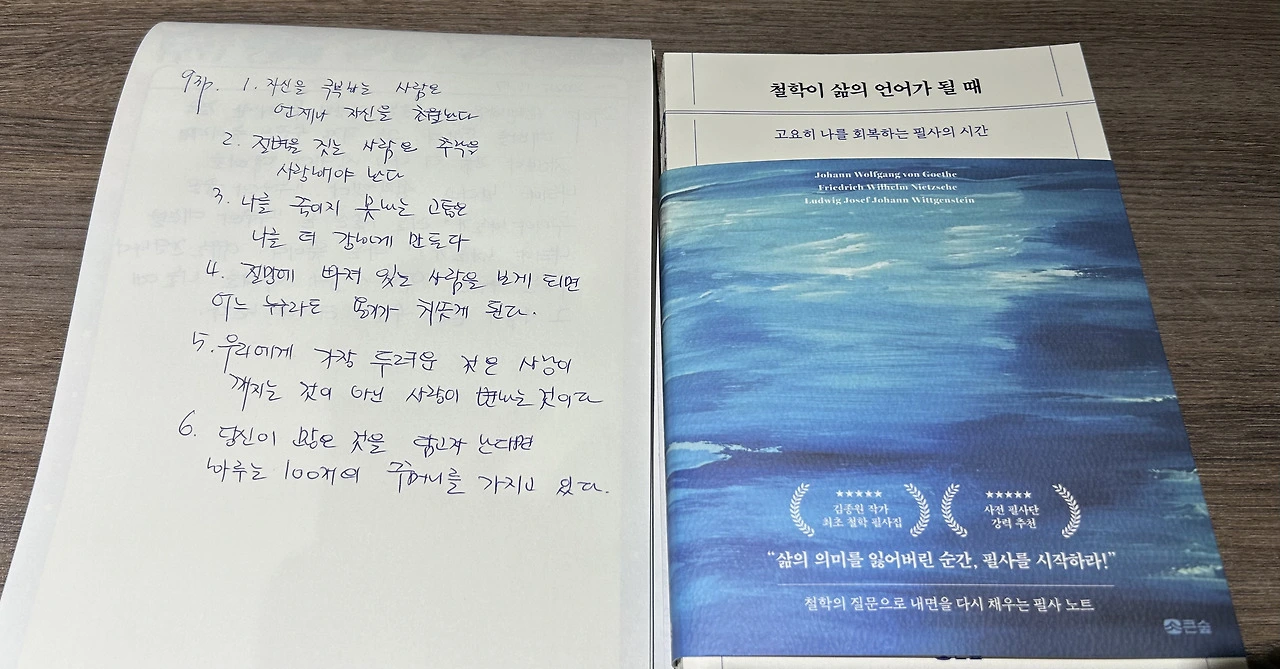 1. 자신을 극복하는 사람은
언제나 자신을 초월한다
2. 전쟁을 짓는 사람은 추락을
사랑해야 한다
3. 나를 죽이지 못하는 고통은
나를 더 강하게 만든다
4. 절망에 빠져 있는 사람을 보게 되면
어느 누구라도 용기가 치솟게 된다.
5. 우리에게 가장 두려운 것은 사랑이
깨지는 것이 아닌 사랑이 변하는 것이다
6. 당신이 많은 것을 담고자 한다면
하루는 100개의 주머니를 가지고 있다.
철학이 삶의 언어가 될 때
고요히 나를 회복하는 필사의 시간
Johann Wolfgang von Goethe
Friedrich Wilhelm Nietzsche
Ludwig Josef Johann Wittgenstein
★★★★★
김종원 작가
최초 철학 필사집
★★★★★
사전 필사단
강력 추천
“삶의 의미를 잃어버린 순간, 필사를 시작하라!”
철학의 질문으로 내면을 다시 채우는 필사 노트
큰숲